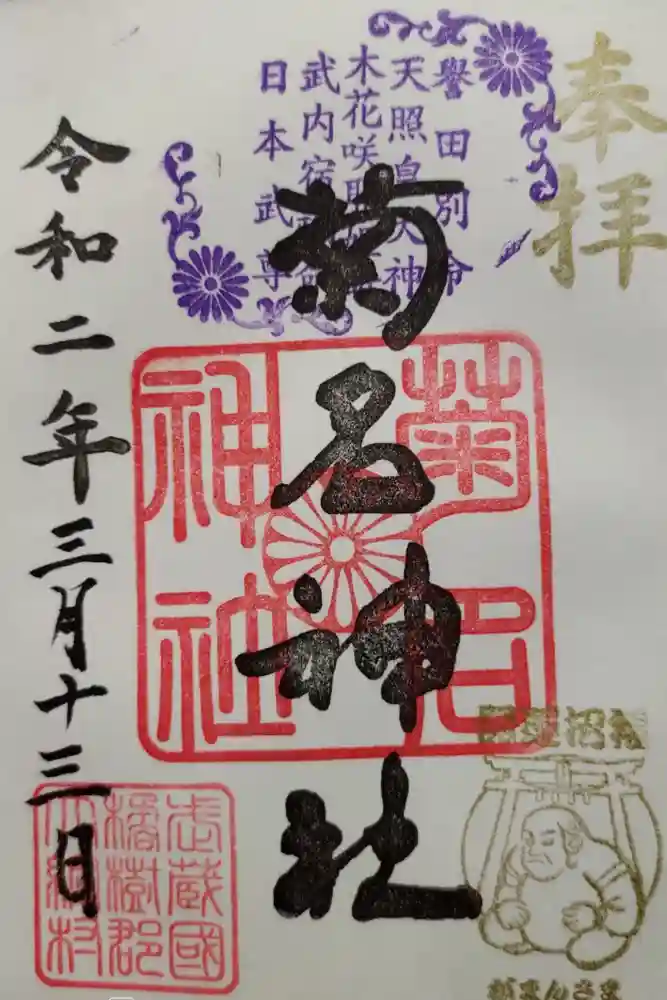 奉拝
譽田別命
天照皇大神
木花咲耶姫命
武内宿禰命
日本武尊
菊名神社
菊名
神社
令和二年三月十三日
武蔵國
橘樹郡
大綱村
菊名神社
がまんさま